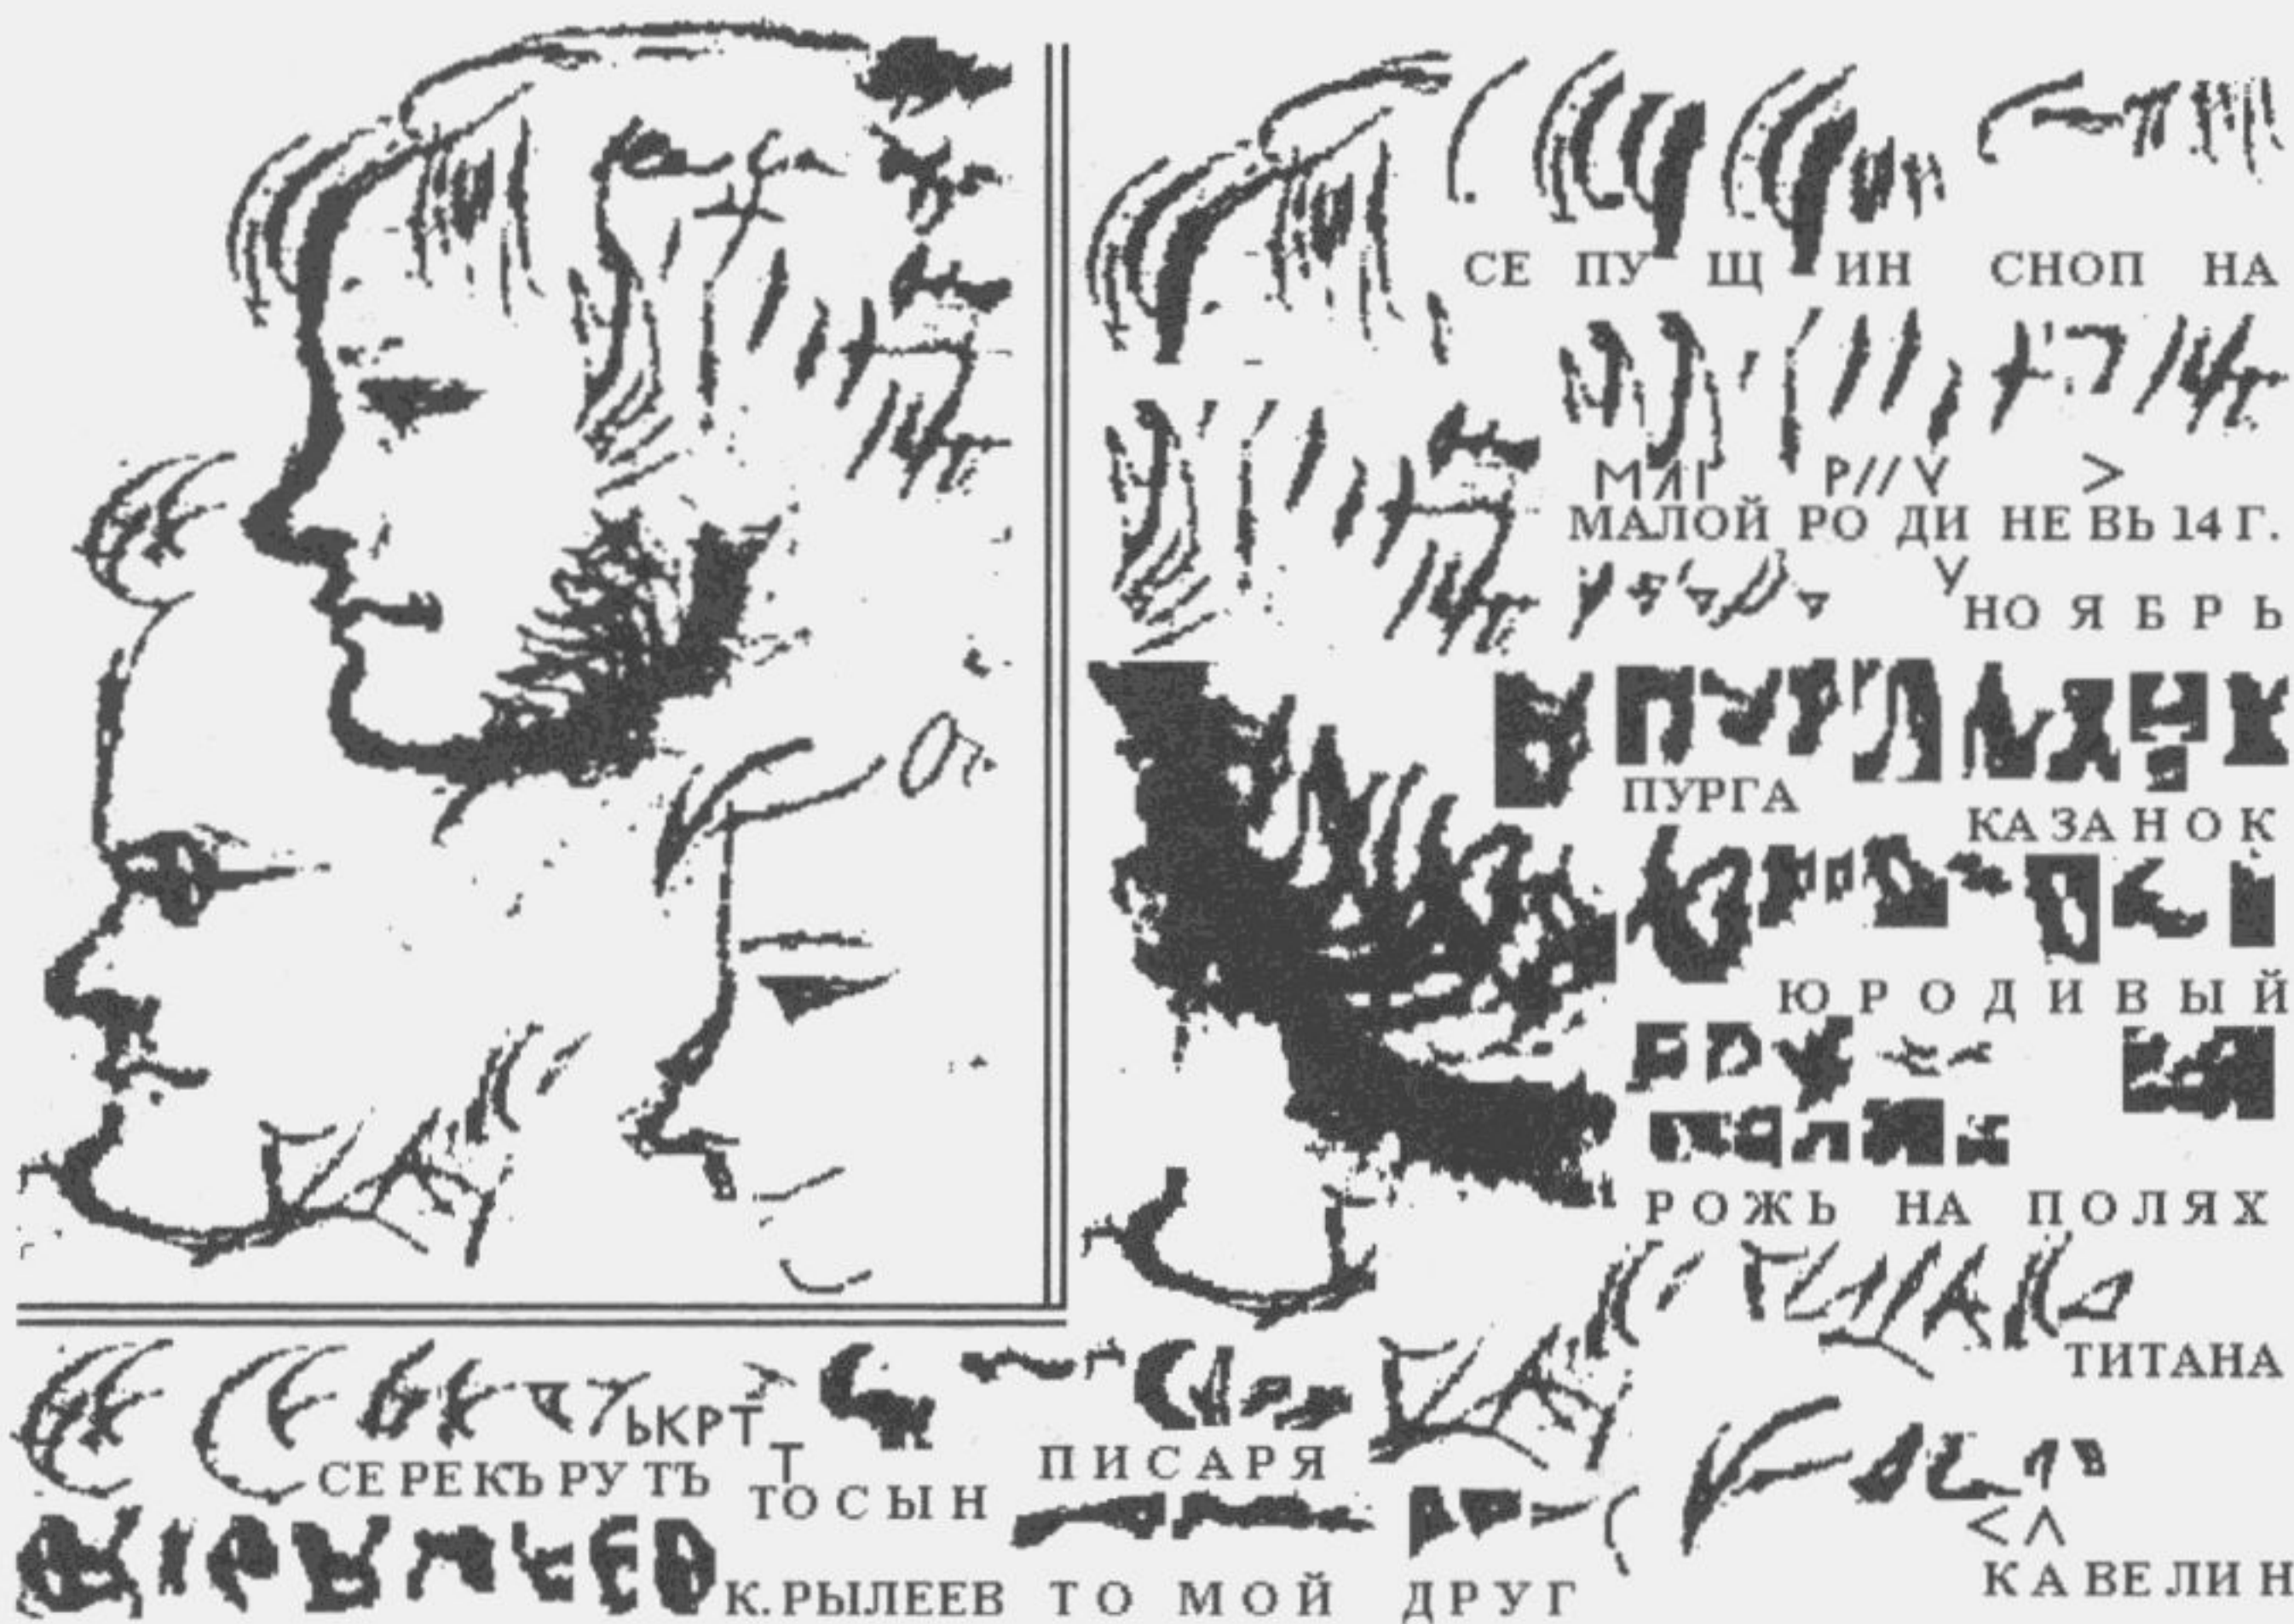 СЕ ПУ Щ ИН СНОП НА
МΛΙ Р// V >
МАЛОЙ РО ДИ НЕ ВЬ 14 Г.
У
НО Я Б Р Ь
ПУРГА
КА ЗА Н О К
Ю Р О Д И В Ы Й
Р О Ж Ь НА П О Л Я Х
ТИТАНА
ЬКРТ Т
СЕ РЕ КЪ РУ ТЪ
ТО С Ы Н
П И С А Р Я
< Λ
К А ВЕ ЛИ Н
К. РЫЛЕЕВ Т О М О Й Д Р У Г